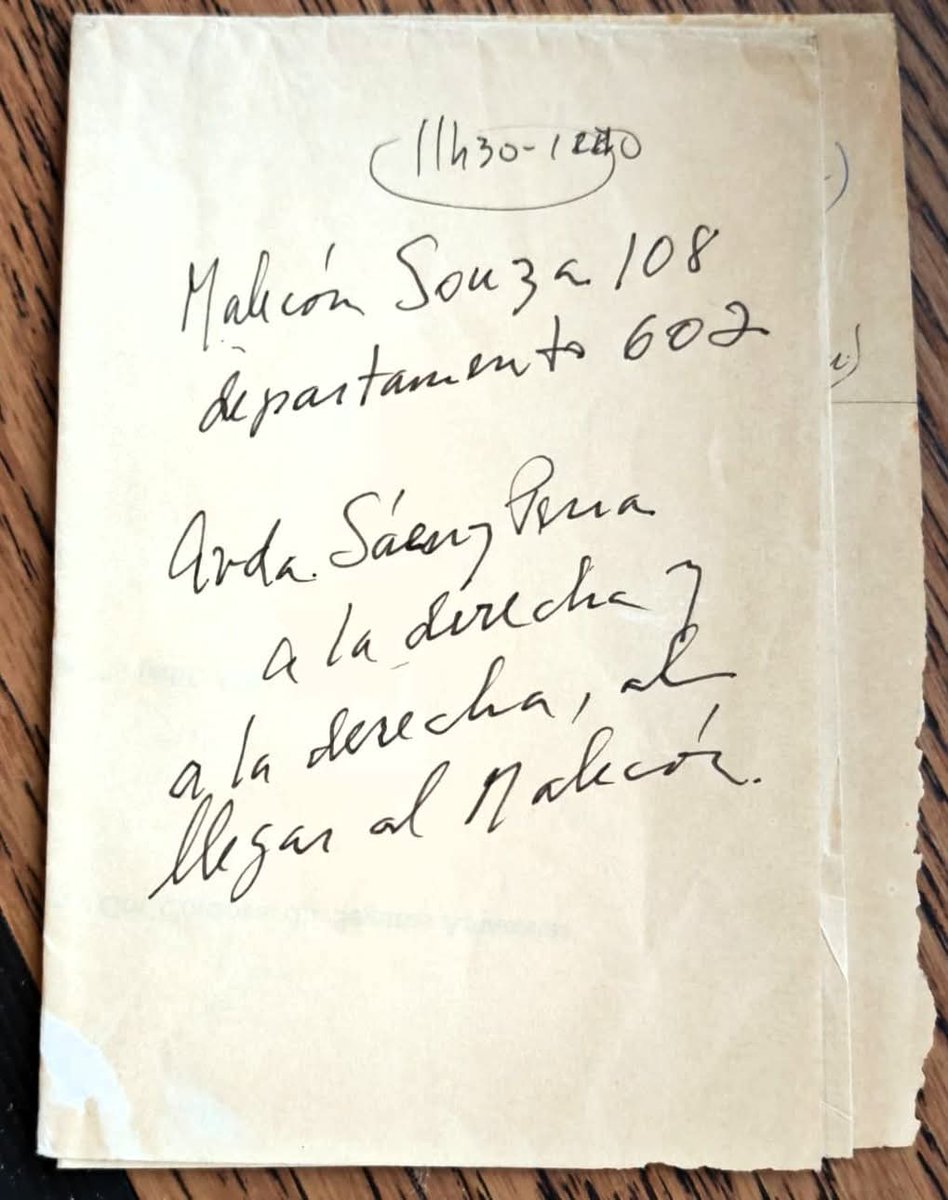 11h30-
Malecón Souza 108
departamento 602
Avda. Sáenz Pena
a la derecha y
a la derecha, al
llegar al Malecón.